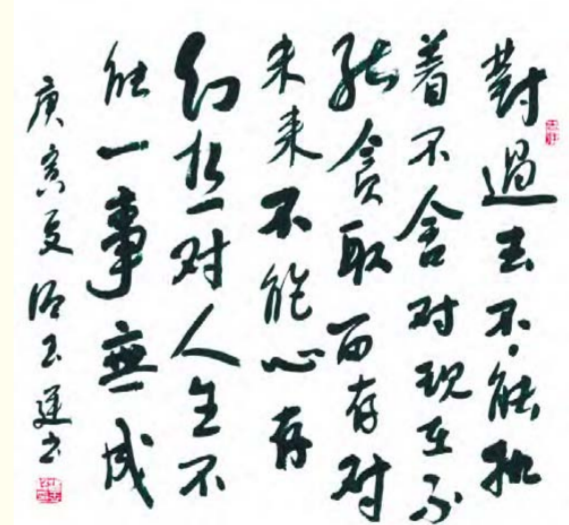 對過去不能执
着不舍对现在不
能貪取而存对
未来不能心存
幻想对人生不
能一事無成
庚寅夏玉莲书